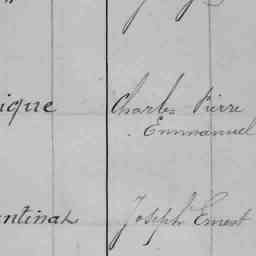 ique Charles Pierre
Emmanuel
Joseph Ernest